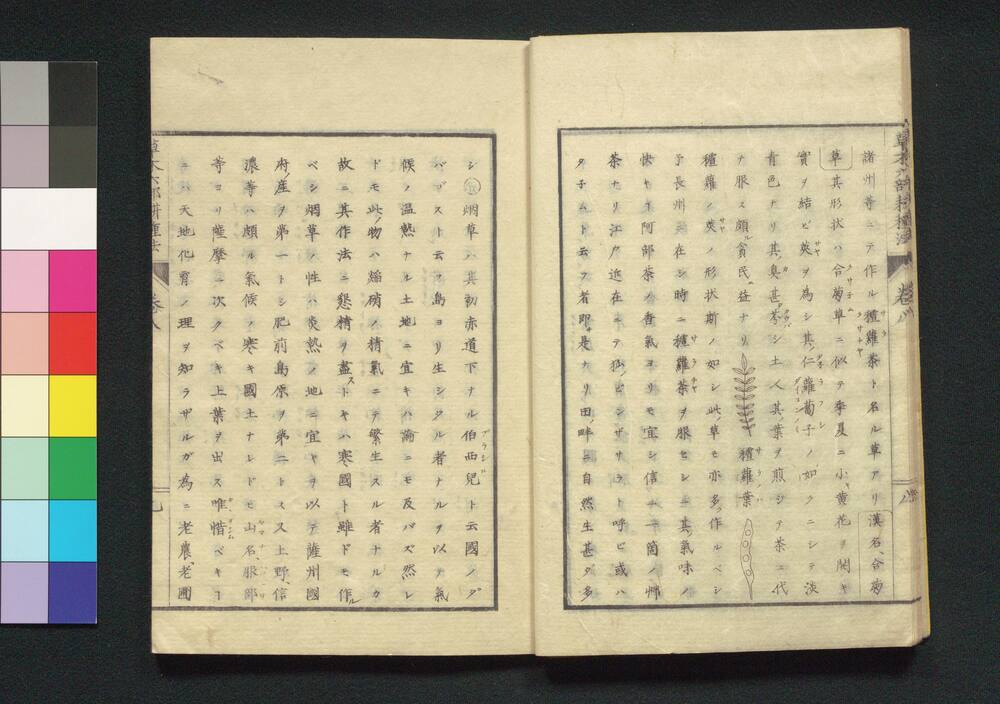 諸州等ニテ作ル種蘿茶ト名ル草アリ漢名合萌
草其形状ハ合萌草ニ似テ季夏ニ小黄花ヲ開キ
實ヲ結ビ莢ヲ為シ其仁蘿蔔子ノ如クニシテ淡
青色ナリ其臭甚芬シ土人其葉ヲ煎ジテ茶ニ代
ナ服ス頗貧民益ナリ
種蘿葉
種蘿ノ莢ノ形状斯ノ如シ此草モ亦多作ルベシ
予長州ニ在シ時ニ種蘿茶ヲ服セシニ其氣味ノ
快キヿ阿部茶ノ香氣ヨリモ宜シ信ニ一箇ノ
茶ナリ江戸近在ニテ ピンザサラト呼ビ或ハ
タ子ムト云フ者即是ナリ田畔ニ自然生甚ダ多
シ 烟草ハ其初赤道下ナル伯西兒ト云國ノダ
バゴスト云フ島ヨリ生シタル者ナルヲ以テ氣
候ノ温熱ナル土地ニ宜キハ論ニモ及バズ然レ
ドモ此物ハ焔硝ノ精氣ニテ繁生スル者ナルカ
故ニ其作法ニ懇精ヲ盡ストキハ寒國ト雖ドモ作ル
ベシ烟草ノ性ハ炎熱ノ地ニ宜キヲ以テ薩州國
府産ヲ第一トシ肥前島原ヲ第二トス又上野信
濃等ハ頗ル氣候ノ寒キ國土ナレドモ山名服部
等ヨリ薩摩ニ次クベキ上葉ヲ出ス唯惜ベキヿ
ニハ天地化育ノ理ヲ知ラザルガ為ニ老農老圃
草木六部耕種法
卷八